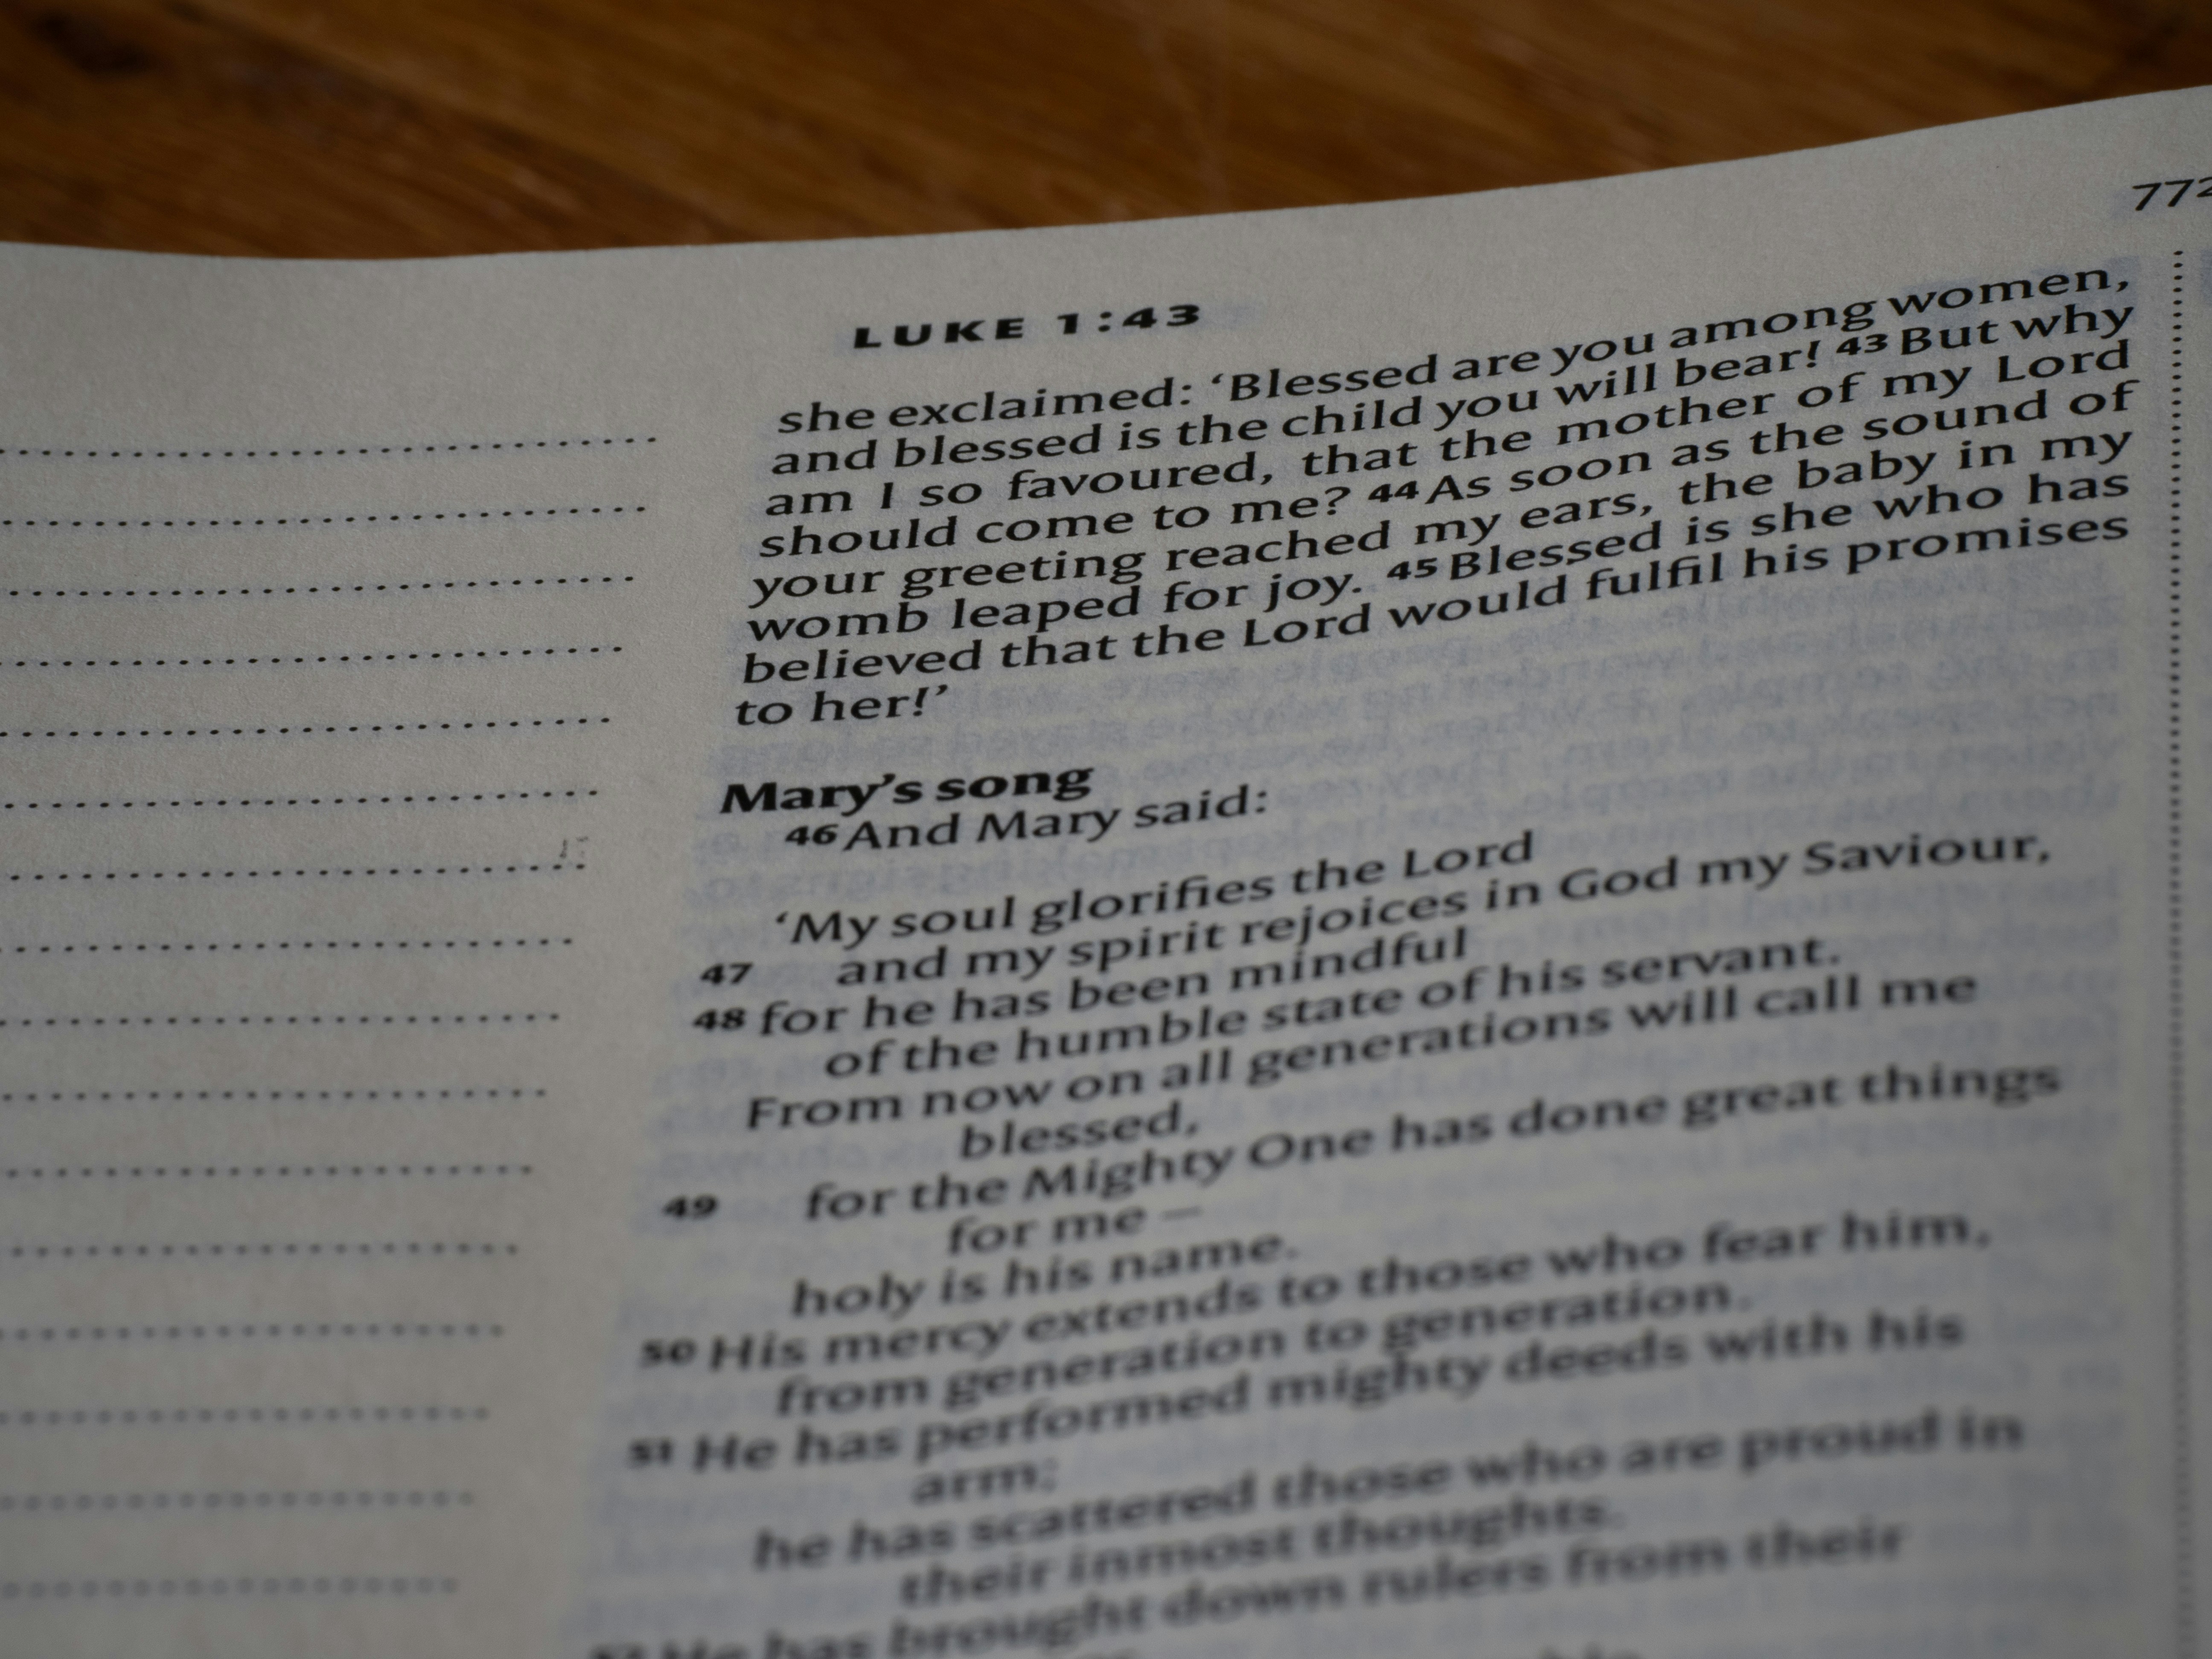 772
LUKE 1:43
she exclaimed: ‘Blessed are you among women,
and blessed is the child you will bear! 43 But why
am I so favoured, that the mother of my Lord
should come to me? 44 As soon as the sound of
your greeting reached my ears, the baby in my
womb leaped for joy. 45 Blessed is she who has
believed that the Lord would fulfil his promises
to her!’
Mary’s song
46 And Mary said:
‘My soul glorifies the Lord
47 and my spirit rejoices in God my Saviour,
48 for he has been mindful
of the humble state of his servant.
From now on all generations will call me
blessed,
49 for the Mighty One has done great things
for me –
holy is his name.
50 His mercy extends to those who fear him,
from generation to generation.
51 He has performed mighty deeds with his
arm;
he has scattered those who are proud in
their inmost thoughts.
He has brought down rulers from their